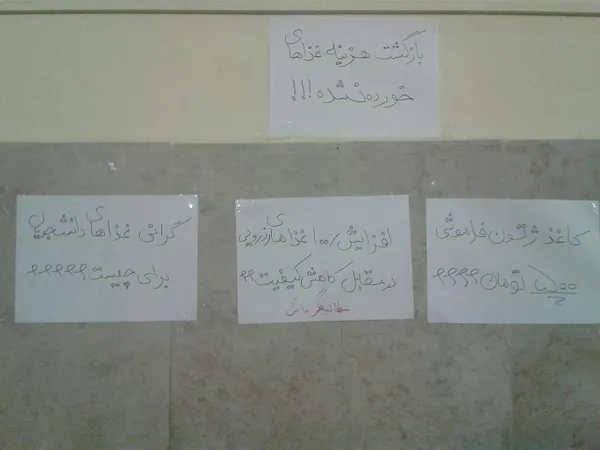 بازگشت هزینه غذاهای
خورده نشده!!!
کاغذ ژتون فراموشی
۵۰۰ تومان؟؟؟؟
افزایش ۱۰۰٪ غذاهای رزروی
در مقابل کاهش کیفیت؟؟
مطالبه‌گر باش
گرانی غذاهای دانشجویی
برای چیست؟؟؟؟؟